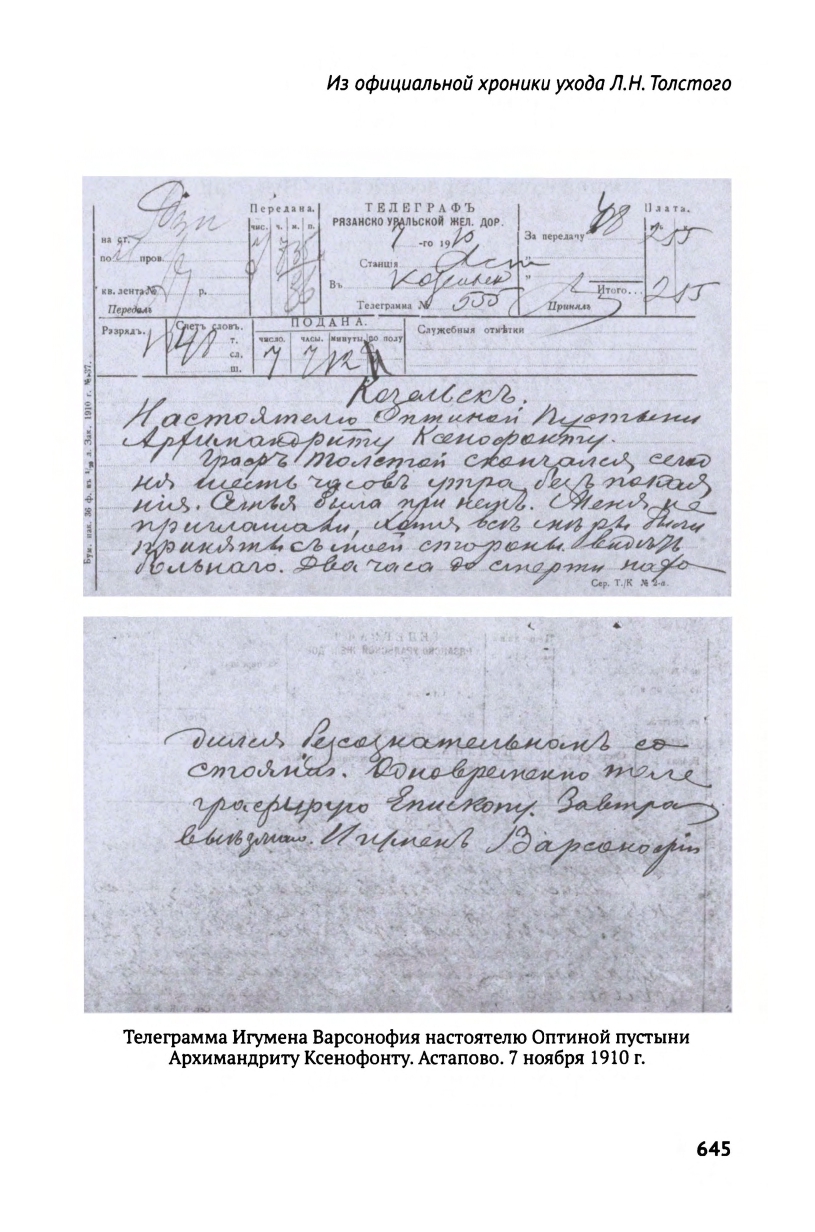 Из официальной хроники ухода Л.Н. Толстого
Передана.
чис. ч. м. п.
на ст.
по пров.
кв. лента №
р.
Передалъ
ТЕЛЕГРАФЪ
РЯЗАНСКО УРАЛЬСКОЙ ЖЕЛ. ДОР.
7 -го 1910
Станція Аст
Въ Козельск
Телеграмма № 555
За передачу 48
"
"
Принялъ
Плата.
255
Итого... 255
Разрядъ.
Счетъ словъ.
48 т.
сл.
ш.
ПОДАНА.
число. часы. минуты. по полу
7 7 12
Служебныя отмѣтки
Козельскъ.
Настоятелю Оптиной Пустыни
Архимандриту Ксенофонту.
Графъ Толстой скончался сегод
ня шесть часовъ утра безъ покая
нія. Семья была при немъ. Меня не
приглашали, хотя всѣ мѣры были
приняты съ моей стороны видѣть
больнаго. Два часа до смерти нахо
Бум. пак. 36 ф. въ л. Зак. 1910 г. № 37.
Сер. Т./К № 2-а.
дился безсознательномъ со
стояніи. Одновременно теле
графирую Епископу. Завтра
выѣзжаю. Игуменъ Варсонофій
Телеграмма Игумена Варсонофия настоятелю Оптиной пустыни
Архимандриту Ксенофонту. Астапово. 7 ноября 1910 г.
645